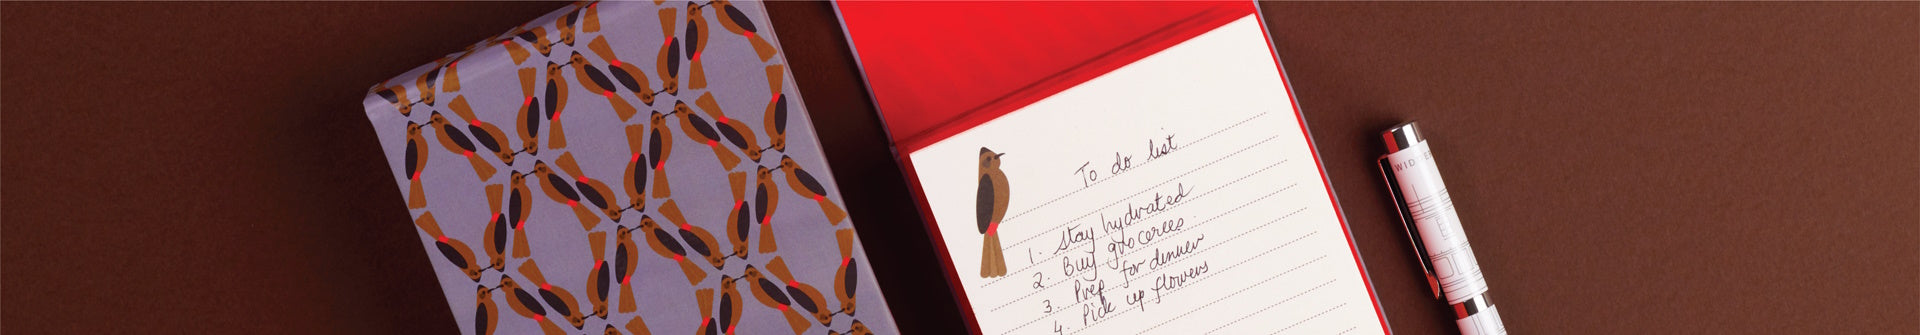 To do list
1. Stay hydrated
2. Buy groceries
3. Prep for dinner
4. Pick up flowers